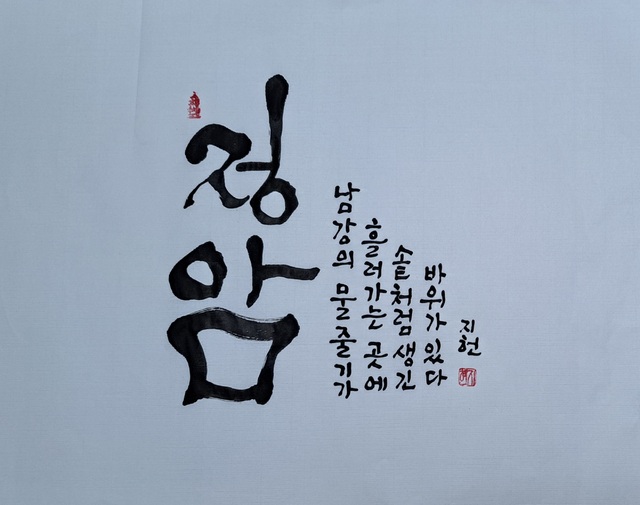 정암
남강의 물줄기가
흘러가는 곳에
솥처럼 생긴
바위가 있다
지헌